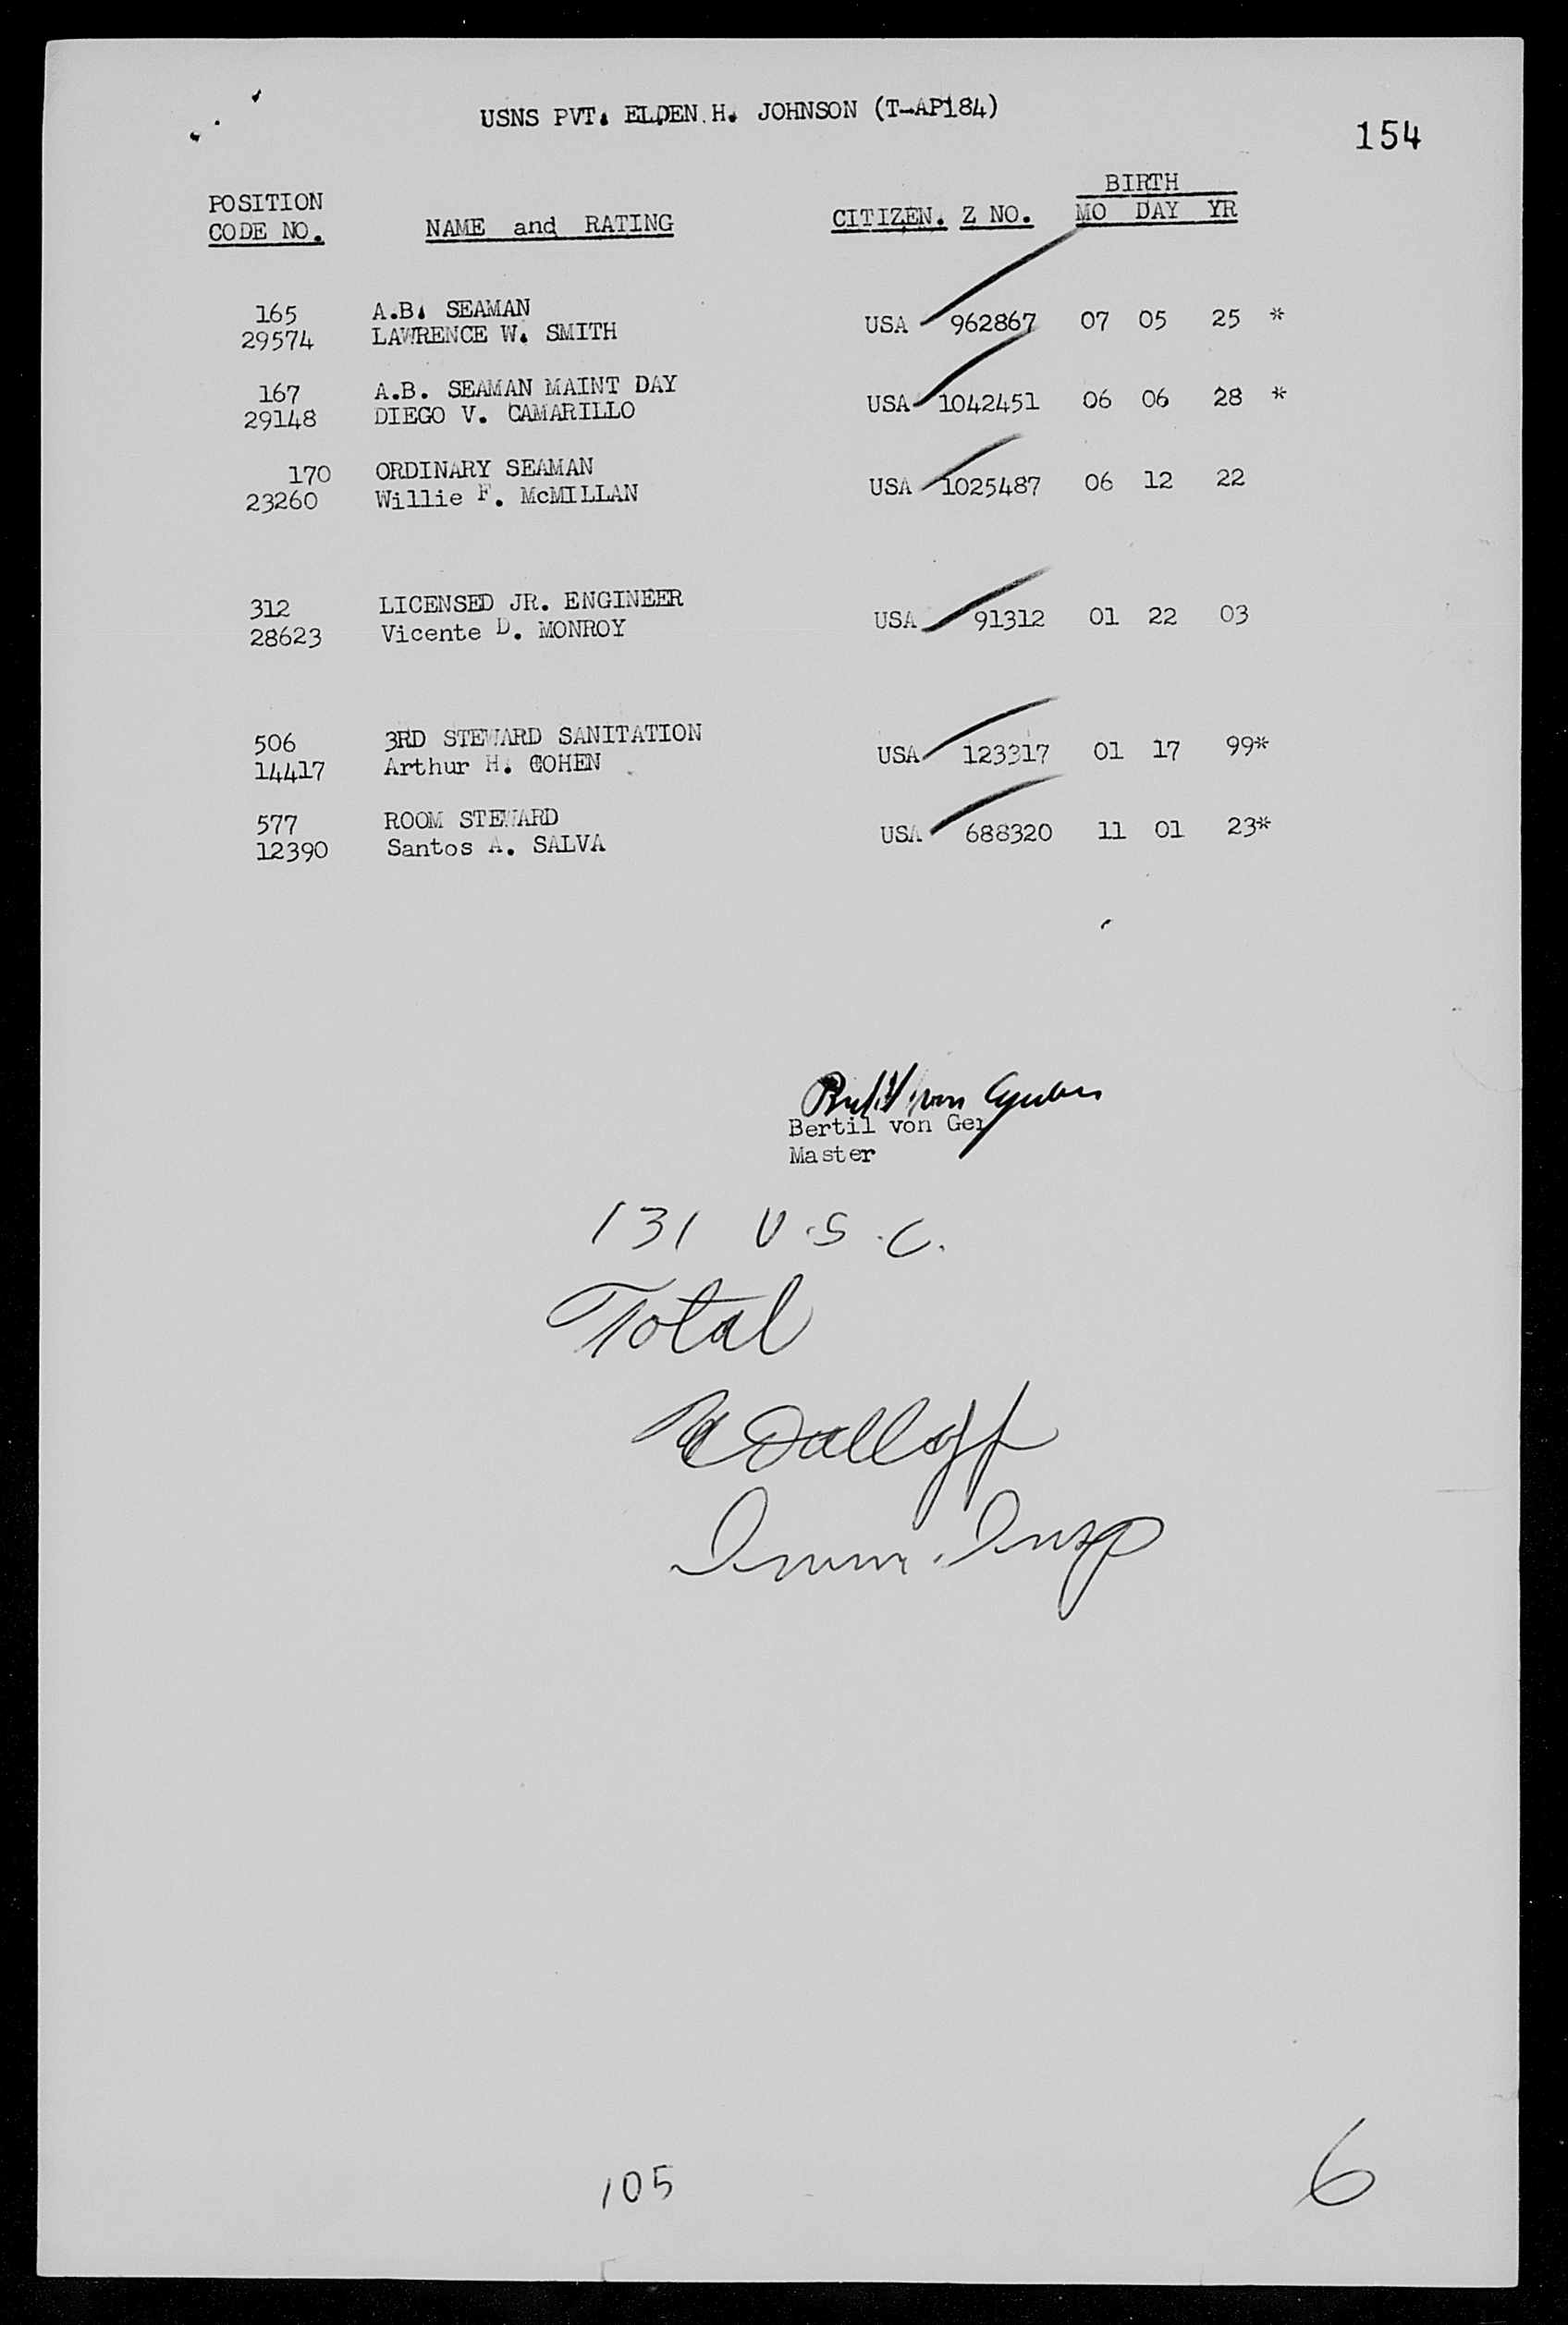 USNS PVT. ELDEN H. JOHNSON (T-AP184)
154
POSITION CODE NO. NAME and RATING CITIZEN. Z NO. BIRTH MO DAY YR
165 A.B. SEAMAN
29574 LAWRENCE W. SMITH USA 962867 07 05 25 *
167 A.B. SEAMAN MAINT DAY
29148 DIEGO V. CAMARILLO USA 1042451 06 06 28 *
170 ORDINARY SEAMAN
23260 Willie F. McMILLAN USA 1025487 06 12 22
312 LICENSED JR. ENGINEER
28623 Vicente D. MONROY USA 91312 01 22 03
506 3RD STEWARD SANITATION
14417 Arthur H. COHEN USA 123317 01 17 99*
577 ROOM STEWARD
12390 Santos A. SALVA USA 688320 11 01 23*
Bertil von
Master
131 U.S.C.
Total
Imm. Insp
105
6